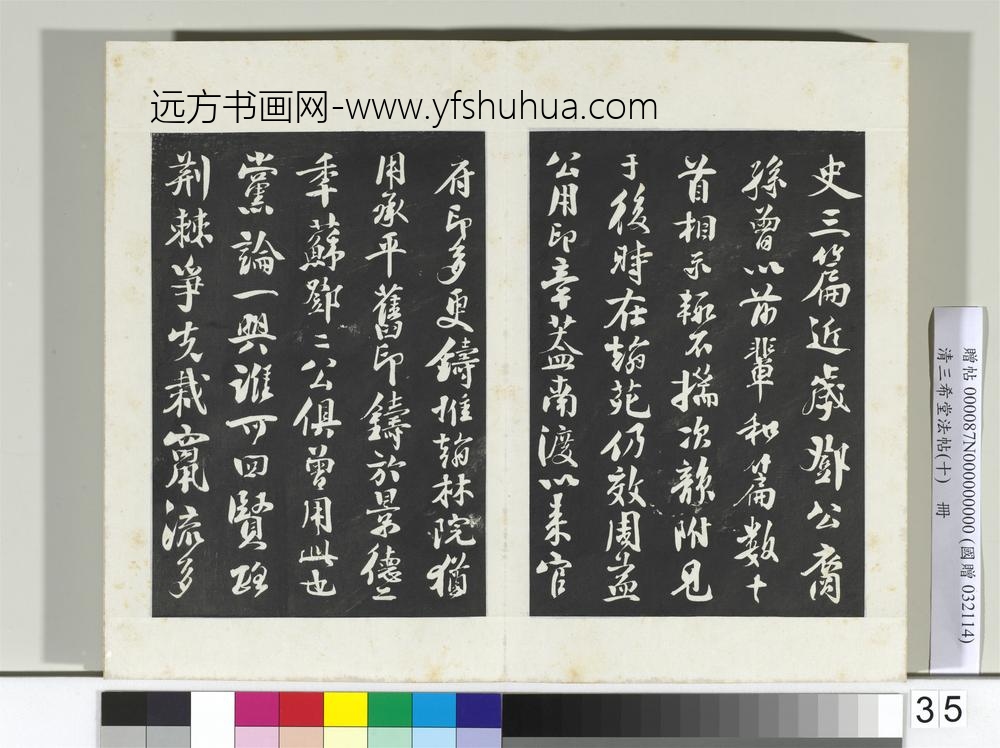 远方书画网-www.yfshuhua.com
史三篇近歲鄧公裔
孫曾以前輩和篇數十
首相示輒不揣次韻附見
于後時在翰苑仍效周益
公用印章蓋南渡以來官
府印多更鑄惟翰林院猶
用承平舊印鑄於景德二
年蘇鄧二公俱曾用此也
黨論一興誰可回賢路
荆棘爭先栽竄流多
贈帖 000087N000000000 (國贈 032114)
清三希堂法帖(十) 冊
35